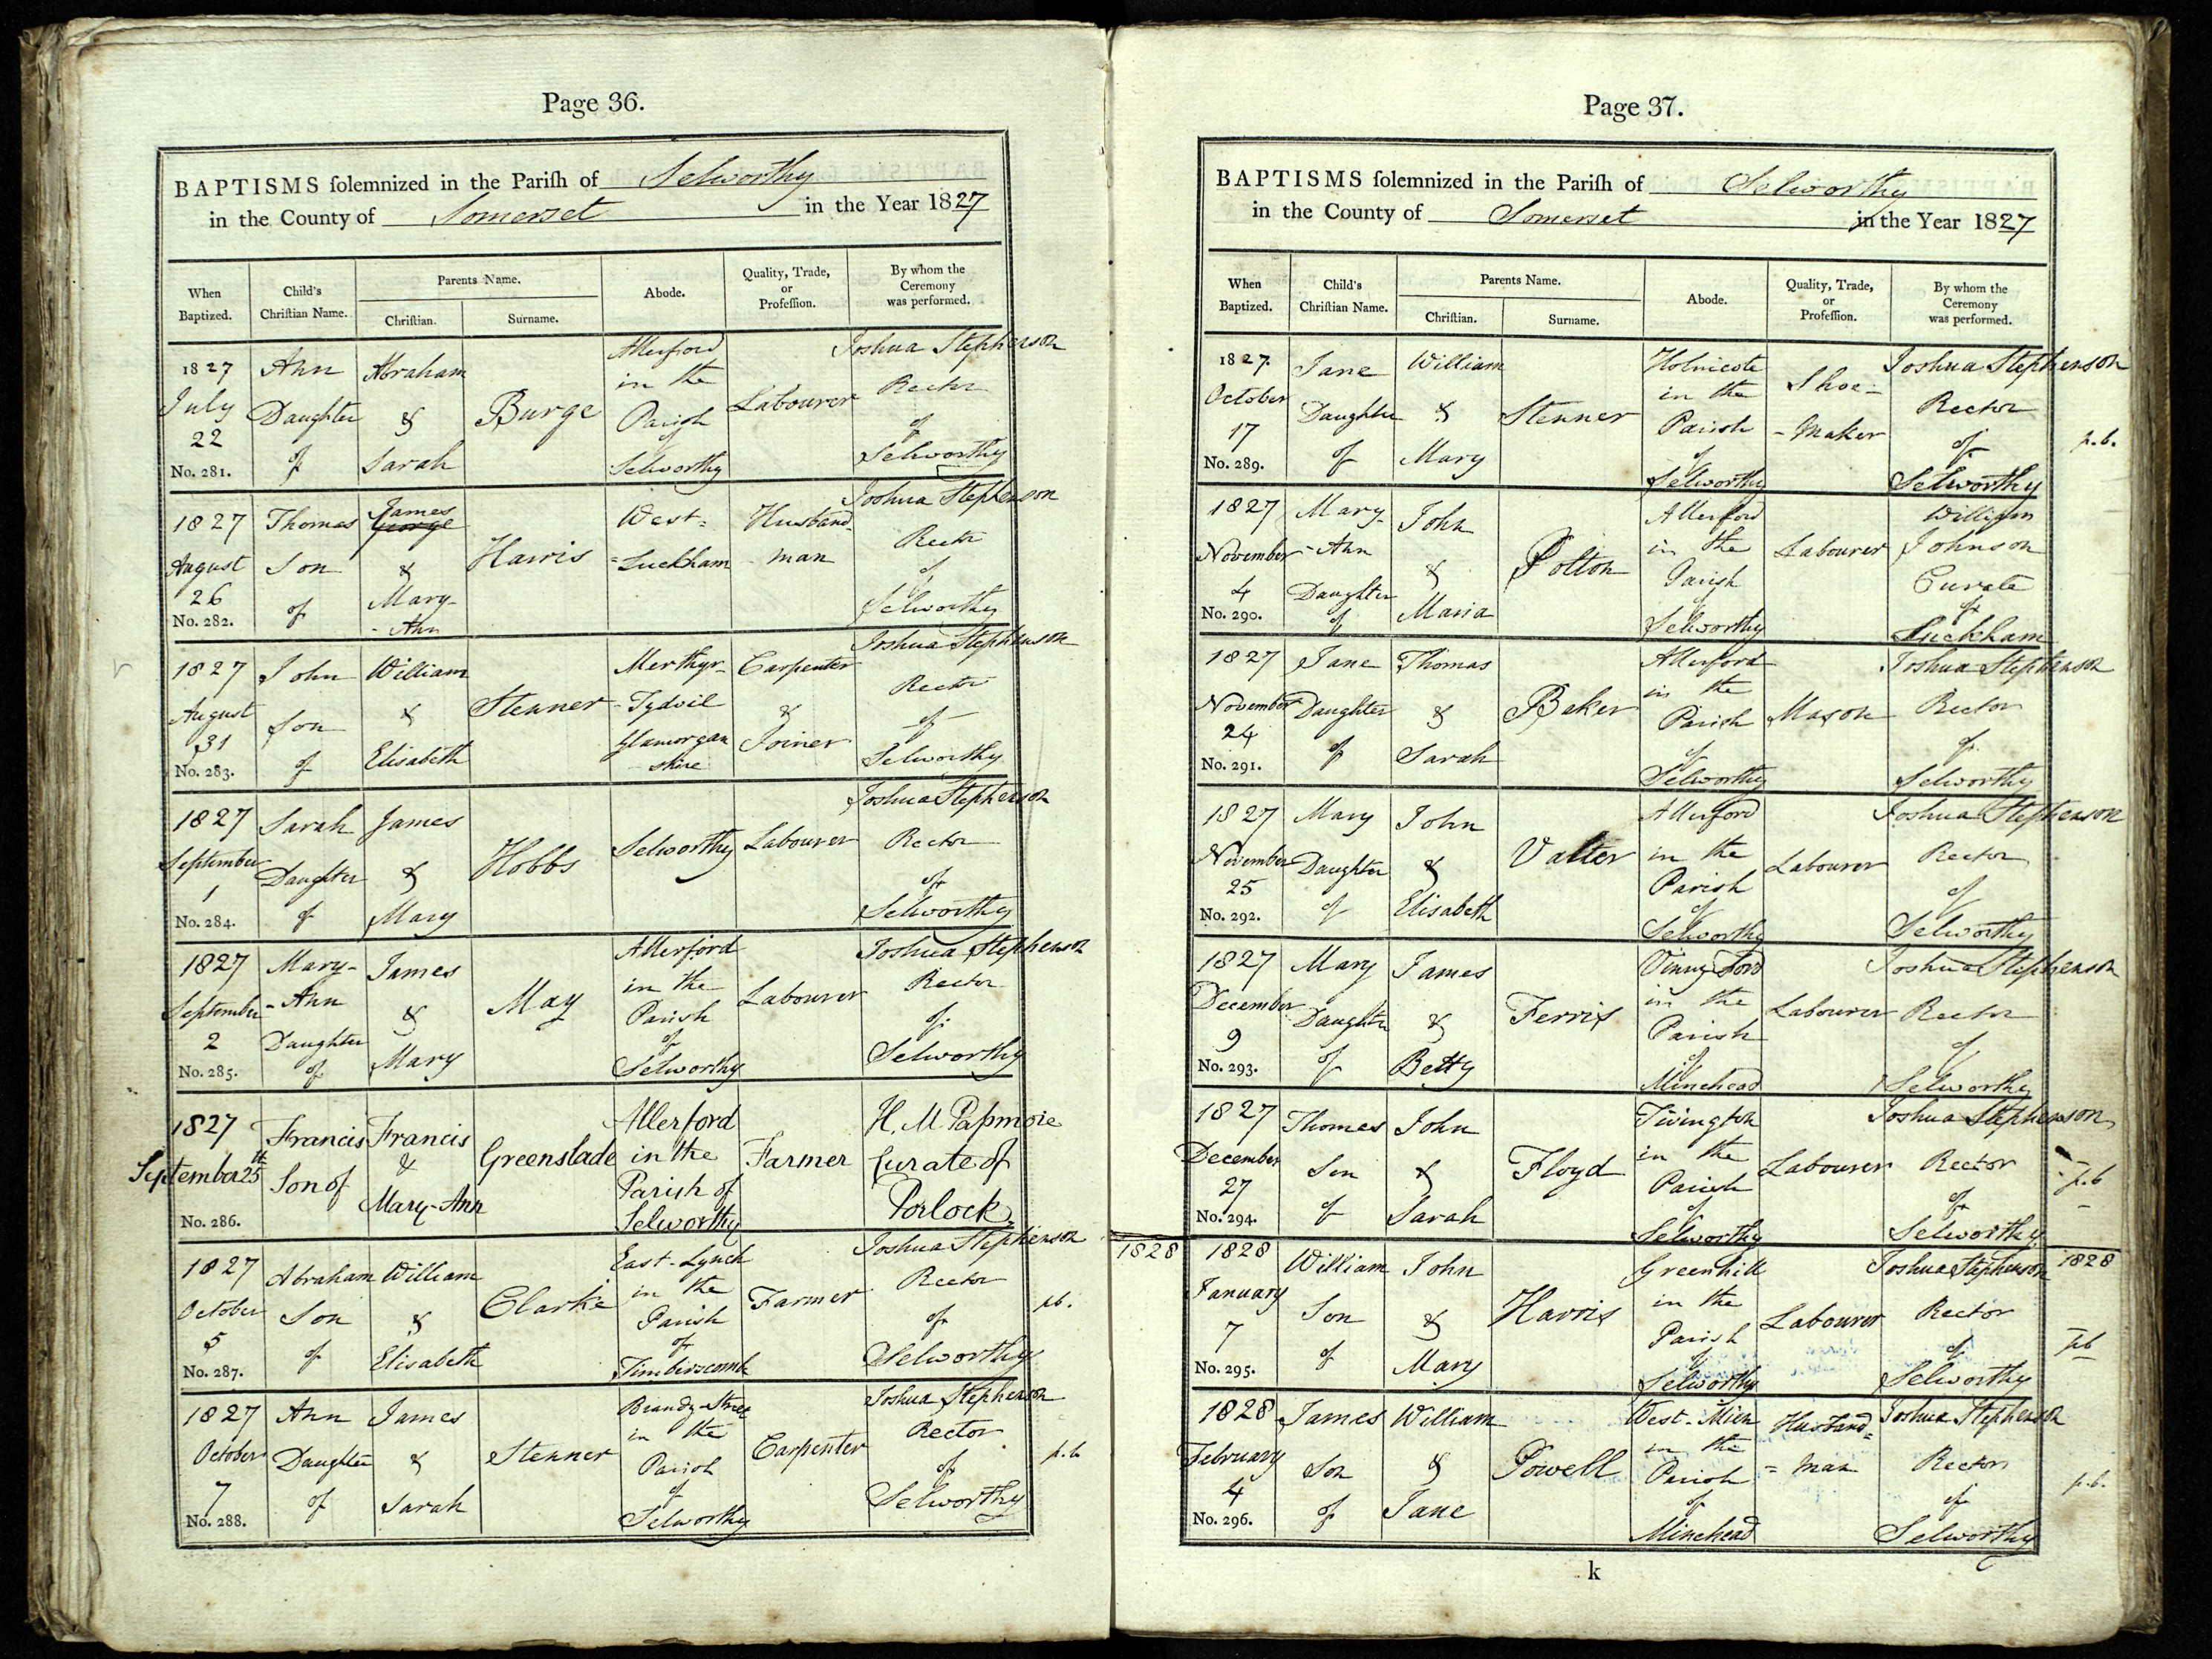 Page 36.
BAPTISMS solemnized in the Parish of Selworthy
in the County of Somerset in the Year 1827
When Baptized. Child's Christian Name. Parents Name. Christian. Surname. Abode. Quality, Trade, or Profession. By whom the Ceremony was performed.
1827 July 22 No. 281. Ann Daughter of Abraham & Sarah Burge Allerford in the Parish of Selworthy Labourer Joshua Stephenson Rector of Selworthy
1827 August 26 No. 282. Thomas Son of James George & Mary-Ann Harris West=Luckham Husband-man Joshua Stephenson Rector of Selworthy
1827 August 31 No. 283. John Son of William & Elisabeth Stenner Merthyr-Tydvil Glamorganshire Carpenter & Joiner Joshua Stephenson Rector of Selworthy
1827 September 1 No. 284. Sarah Daughter of James & Mary Hobbs Selworthy Labourer Joshua Stephenson Rector of Selworthy
1827 September 2 No. 285. Mary-Ann Daughter of James & Mary May Allerford in the Parish of Selworthy Labourer Joshua Stephenson Rector of Selworthy
1827 September 25th No. 286. Francis Son of Francis & Mary-Ann Greenslade Allerford in the Parish of Selworthy Farmer H. M. Curate of Porlock
1827 October 5 No. 287. Abraham Son of William & Elisabeth Clarke East-Lynch in the Parish of Timberscomb Farmer Joshua Stephenson Rector of Selworthy p.b.
1827 October 7 No. 288. Ann Daughter of James & Sarah Stenner Brandy-Street in the Parish of Selworthy Carpenter Joshua Stephenson Rector of Selworthy p.b
Page 37.
BAPTISMS solemnized in the Parish of Selworthy
in the County of Somerset in the Year 1827
When Baptized. Child's Christian Name. Parents Name. Christian. Surname. Abode. Quality, Trade, or Profession. By whom the Ceremony was performed.
1827. October 17 No. 289. Jane Daughter of William & Mary Stenner Holnicote in the Parish of Selworthy Shoe-Maker Joshua Stephenson Rector of Selworthy p.b.
1827 November 4 No. 290. Mary-Ann Daughter of John & Maria Polton Allerford in the Parish of Selworthy Labourer William Johnson Curate of Luckham
1827 November 24 No. 291. Jane Daughter of Thomas & Sarah Baker Allerford in the Parish of Selworthy Mason Joshua Stephenson Rector of Selworthy
1827 November 25 No. 292. Mary Daughter of John & Elisabeth Valter Allerford in the Parish of Selworthy Labourer Joshua Stephenson Rector of Selworthy
1827 December 9 No. 293. Mary Daughter of James & Betty Ferris in the Parish of Minehead Labourer Joshua Stephenson Rector of Selworthy
1827 December 27 No. 294. Thomas Son of John & Sarah Floyd Tivington in the Parish of Selworthy Labourer Joshua Stephenson Rector of Selworthy p.b
1828 1828 January 7 No. 295. William Son of John & Mary Harris Greenhill in the Parish of Selworthy Labourer Joshua Stephenson Rector of Selworthy 1828 pb
1828 February 4 No. 296. James Son of William & Jane Powell West-Mien in the Parish of Minehead Husband=man Joshua Stephenson Rector of Selworthy p.b.
k